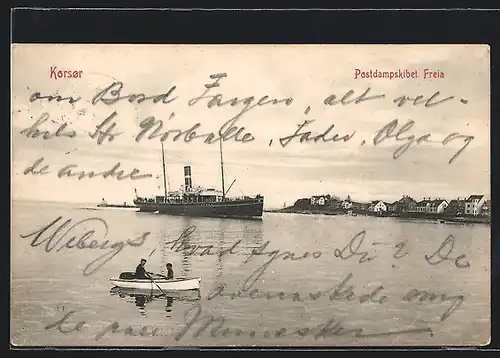 Korsør
Postdampskibet Freia
om Bord Færgen, alt vel-
hils Hr Nørballe, Fader, Olga og
de andre
Wibergs hvad synes Du? De
omg
de Mennesker